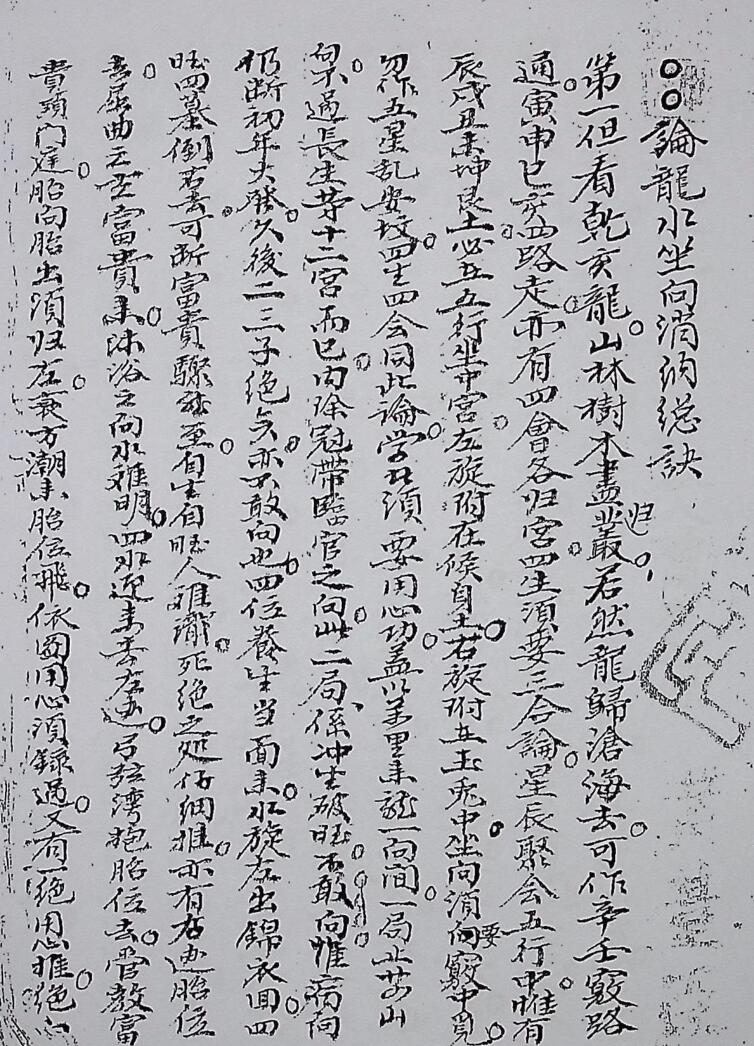 論龍水坐向消納總訣
第一但看乾亥龍。山林樹木盡歸叢。若然龍歸滄海去。可作辛壬竅路
通。寅申巳亥四路走。亦有四會各归宮。四生須要三合論。星辰聚会五行中。惟有
辰戌丑未坤艮土。必五五行坐中宮。左旋附在候自土。右旋附五玉兎中。坐向須要向竅中覓。
勿作五星乱安坟。四生四会同此論。学者須要用心功。盖以萬里來龍一向间。一局止葬山
向。不過長生等十二宮而已。内除冠帶臨官之向。此二局、係冲生破旺。不敢向。惟病向
仍断初年大勝。久後二三子絶矣。亦不敢向也。四位養生当面來。水旋左出錦衣回。四
旺四墓倒右去。可断富貴驟然至。自生自旺人难識。死絶之処仔細推。亦有右边胎位
去。屈曲之玄富貴來。沐浴之向水难明。四水迎來去左边。弓弦湾抱胎位去。管教富
貴頭門庭。胎向胎出須归左。衰方潮來胎位飛。依圖用心須録過。又有一絶用思推。絶向